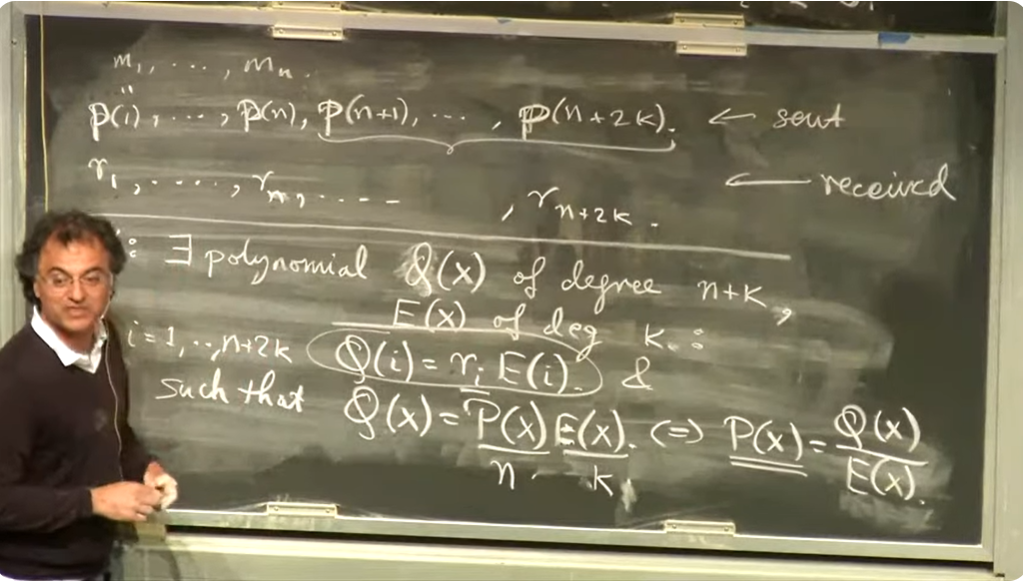 m₁, ..., mₙ.
"
P(i), ..., P(n), P(n+1), ..., P(n+2k). ← sent
r₁, ....., rₙ, .... , rₙ₊₂ₖ. ← received
: ∃ polynomial Q(x) of degree n+k,
E(x) of deg k.:
i=1,..,n+2k Q(i) = rᵢ E(i). &
such that Q(x) = P(x) E(x). (=) P(x) = Q(x)/E(x).
n k